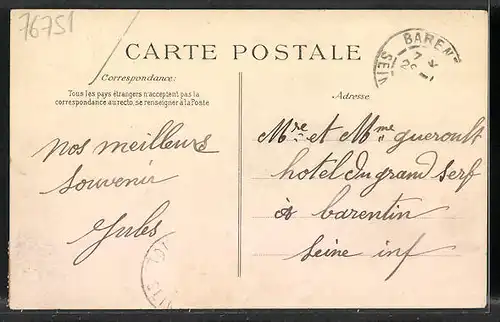 76751
CARTE POSTALE
BAREN
SEIN
Correspondance:
Tous les pays étrangers n'acceptent pas la
correspondance au recto, se renseigner à la Poste
Adresse
nos meilleurs
souvenir
Jules
Mre et Mme gueroult
hotel du grand serf
à barentin
seine inf